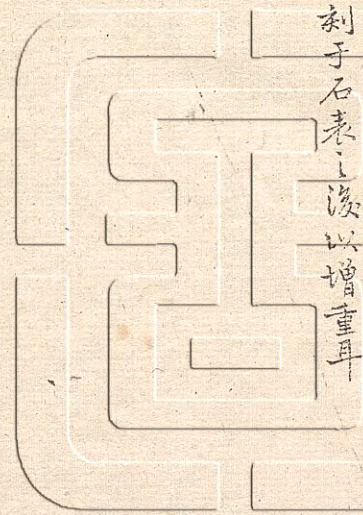 刻于石表之後以增重耳